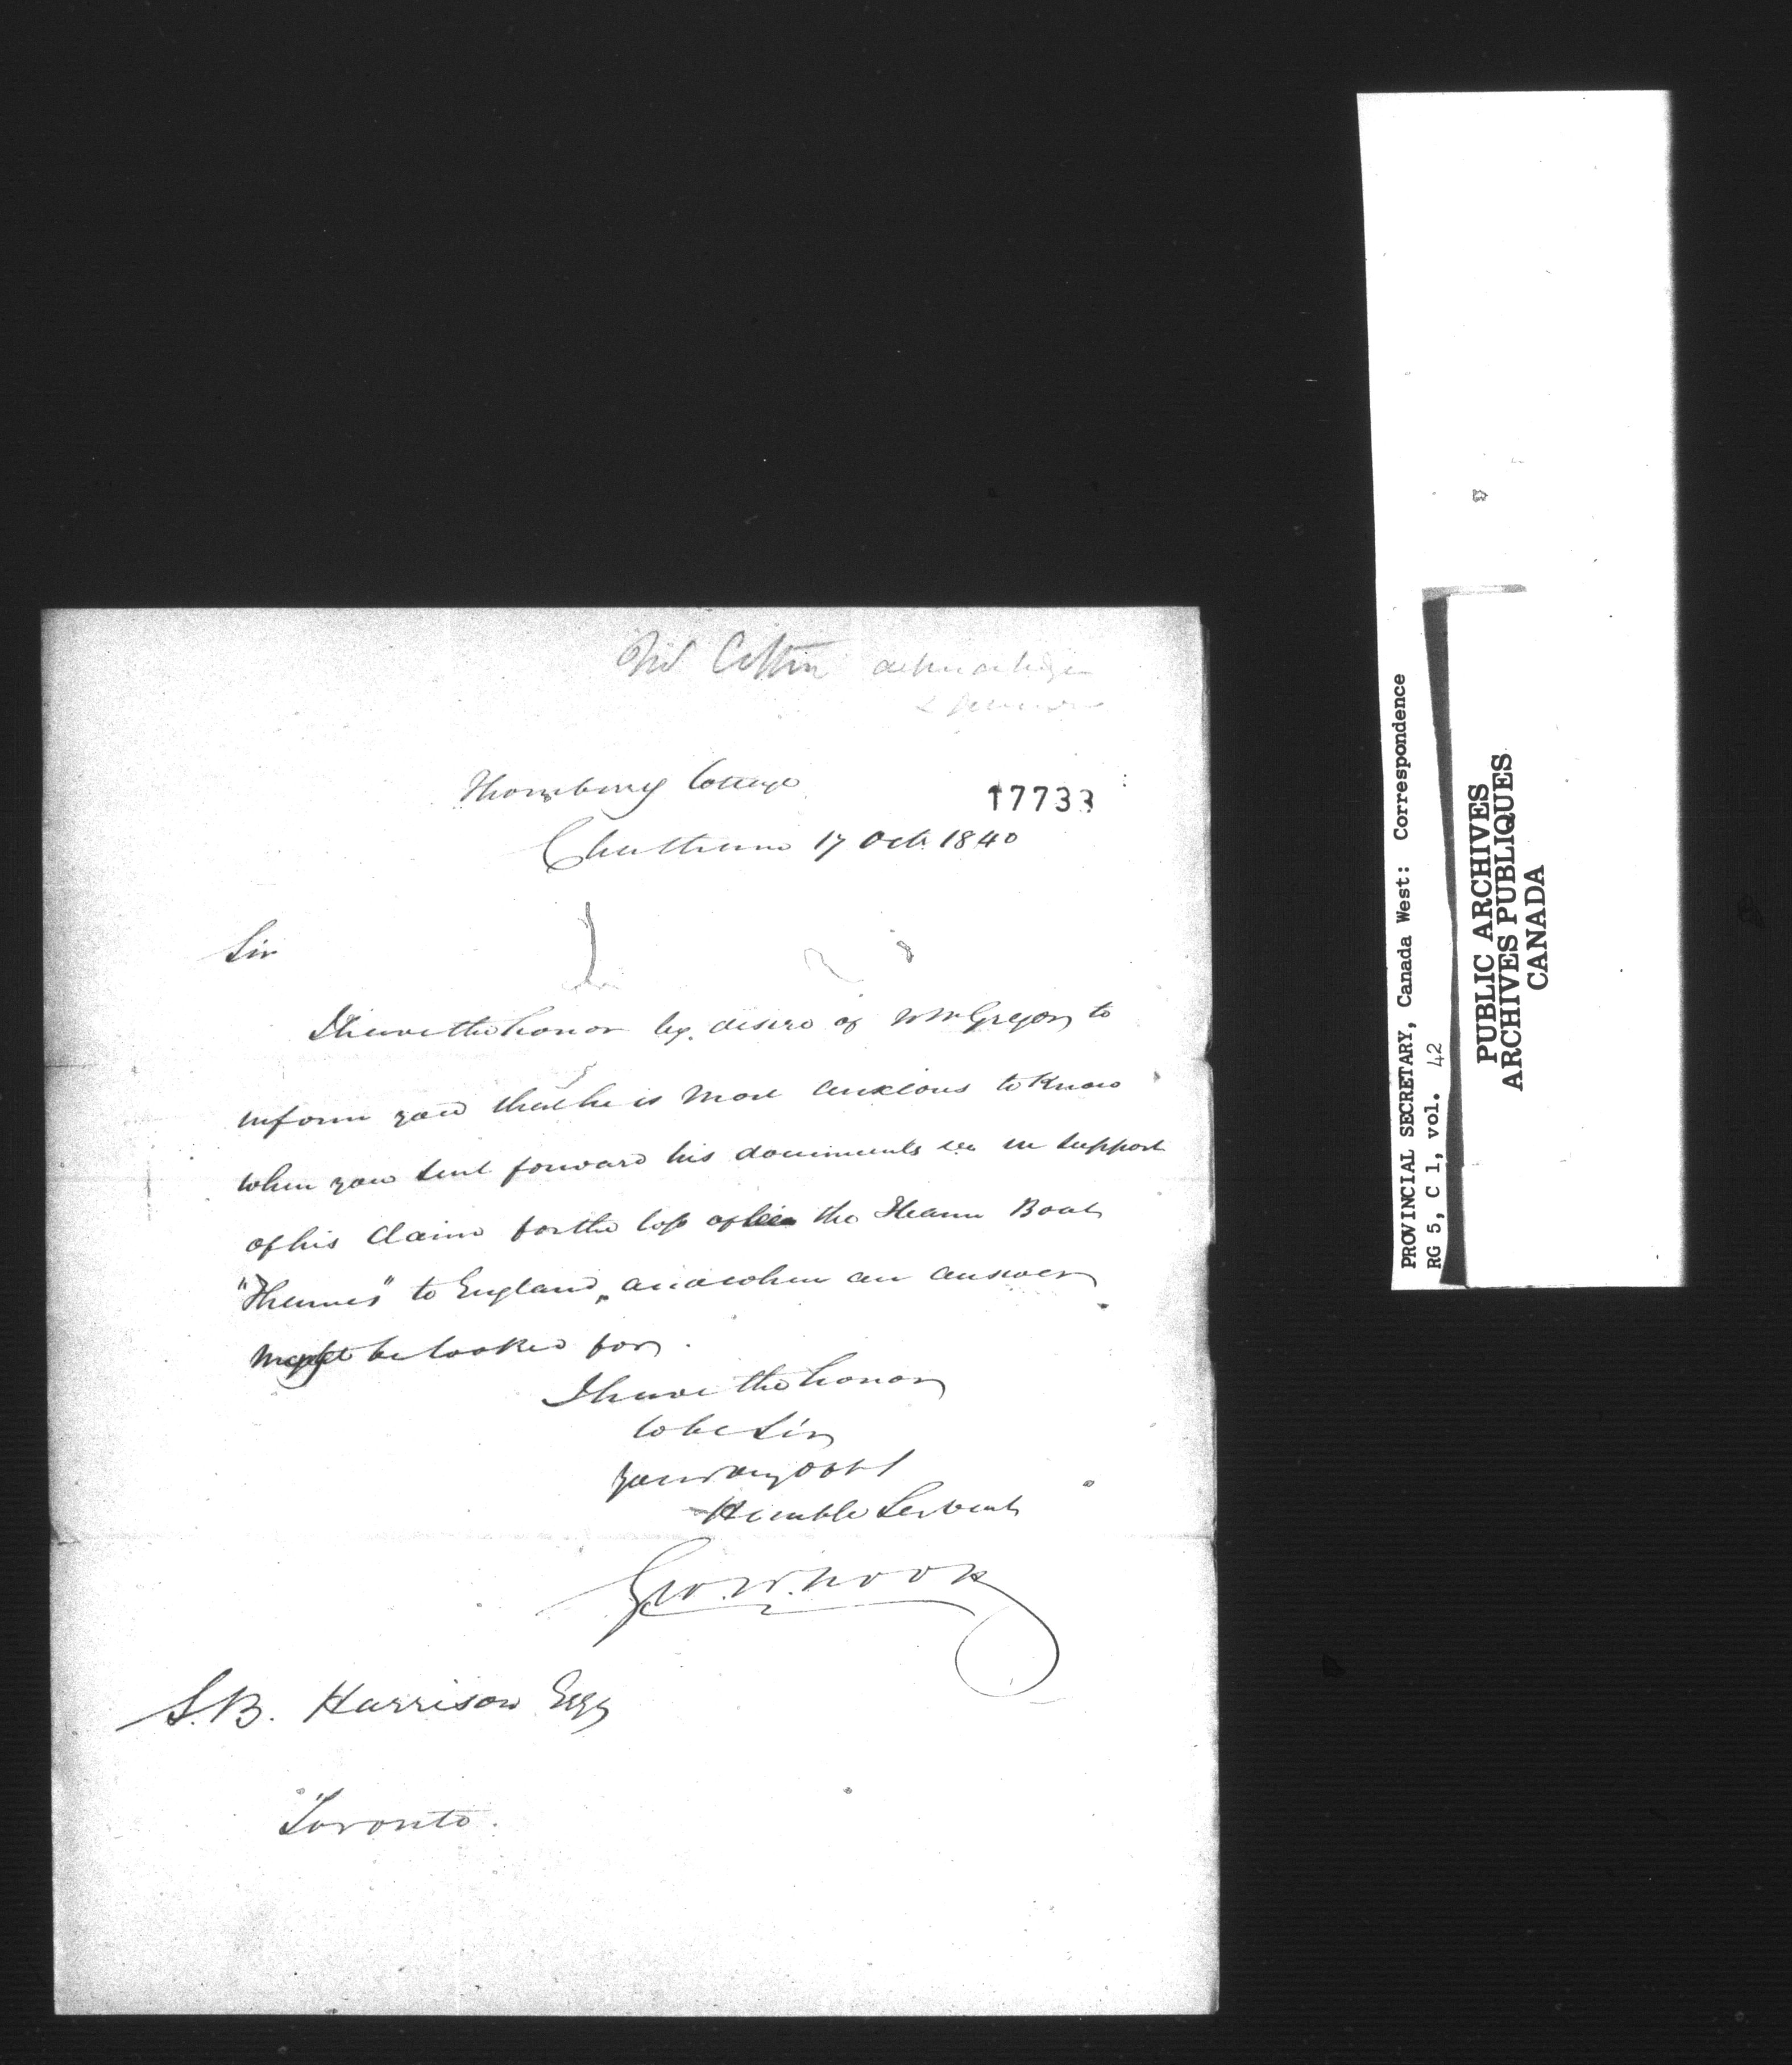 Thornbury Cottage
17733
Chatham 17 Oct. 1840
Sir
I have the honor by desire of McGregor to
inform you that he is most anxious to Know
when you sent forward his documents in support
of his Claim for the loss of the Steam Boat
"Thames" to England, and when an answer
might be looked for.
I have the honor
to be Sir
your very obt
Humble Servant
Geo. W. Foott
S.B. Harrison Esqr
Toronto.
PROVINCIAL SECRETARY, Canada West: Correspondence
RG 5, C 1, vol. 42
PUBLIC ARCHIVES
ARCHIVES PUBLIQUES
CANADA